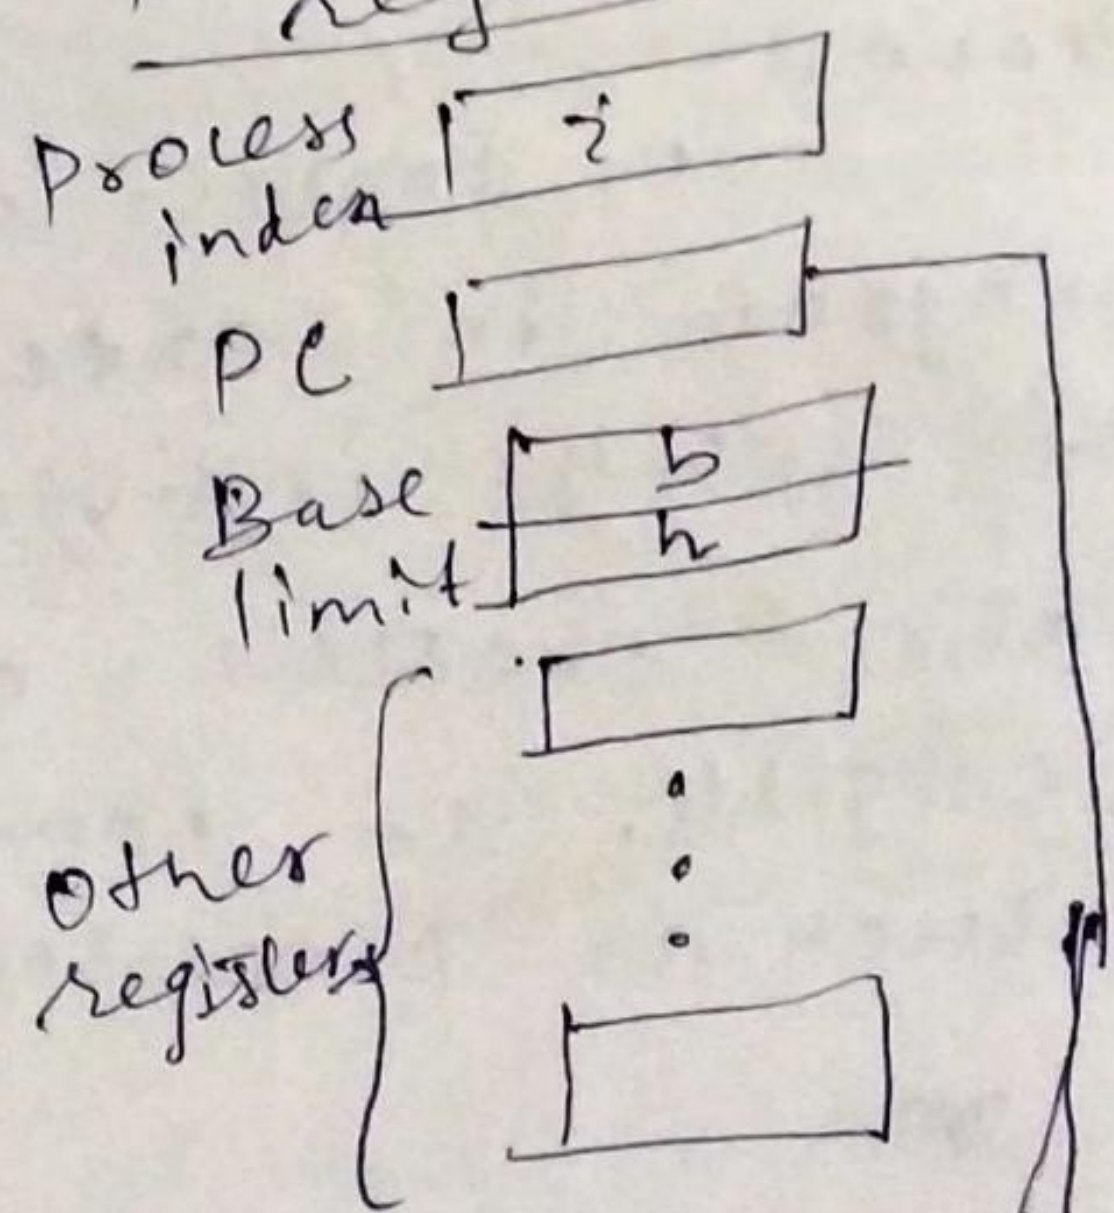 Process
index
i
PC
Base
limit
b
h
Other
registers